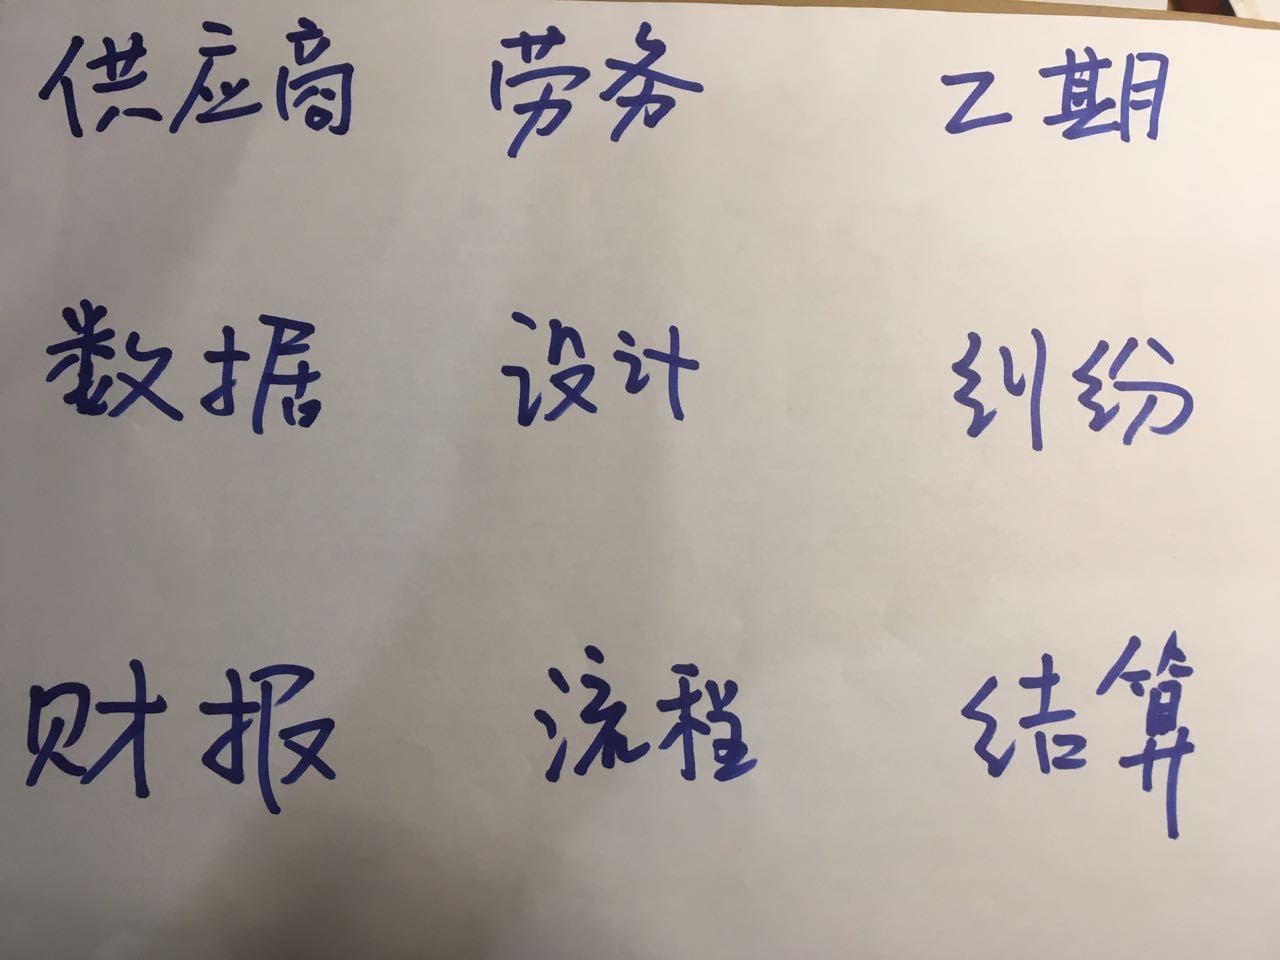 供应商 劳务 工期
数据 设计 纠纷
财报 流程 结算